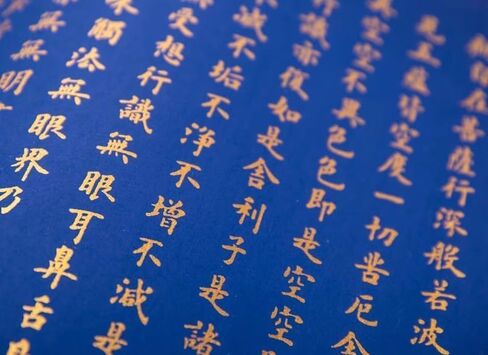 在菩薩行深般若波
見五蘊皆空度一切苦厄舍
異空空不異色色即是空空
識亦復如是舍利子是諸
滅不垢不淨不增不減是
受想行識無眼耳鼻舌
味觸法無眼界乃
無無明